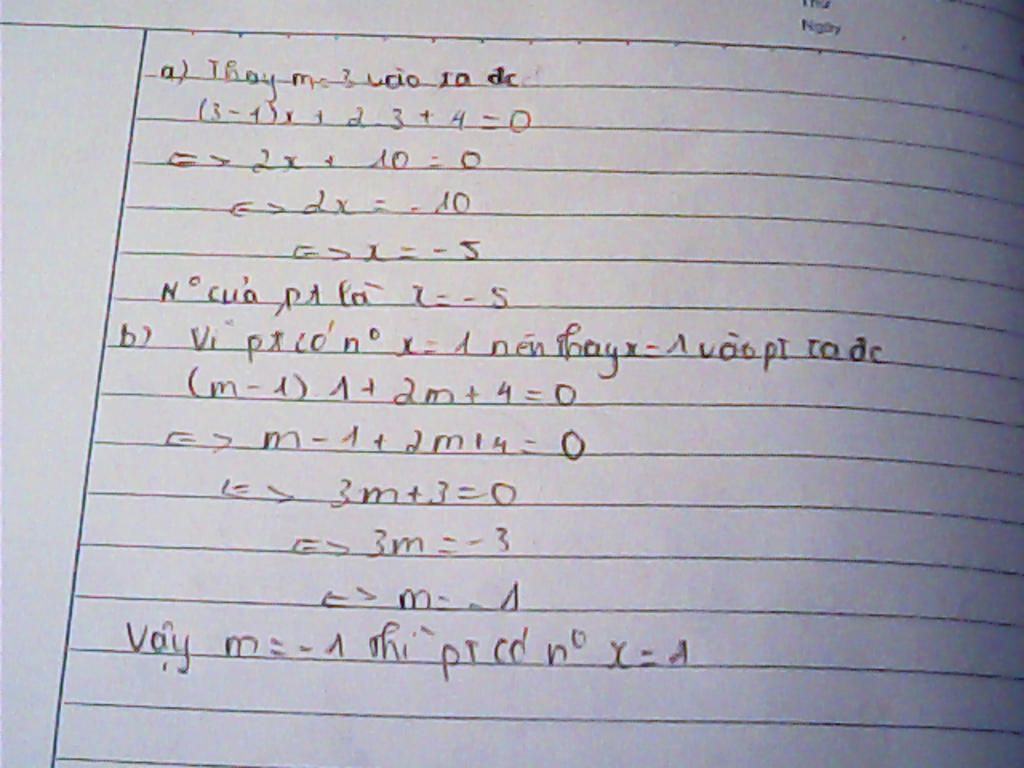 Thứ
Ngày
a) Thay m = 3 vào ta đc
(3-1)x + 2.3 + 4 = 0
<=> 2x + 10 = 0
<=> 2x = -10
<=> x = -5
N° của pt là x = -5
b) Vì pt có n° x = 1 nên thay x = 1 vào pt ta đc
(m-1) 1 + 2m + 4 = 0
<=> m - 1 + 2m + 4 = 0
<=> 3m + 3 = 0
<=> 3m = -3
<=> m = -1
Vậy m = -1 thì pt có n° x = 1